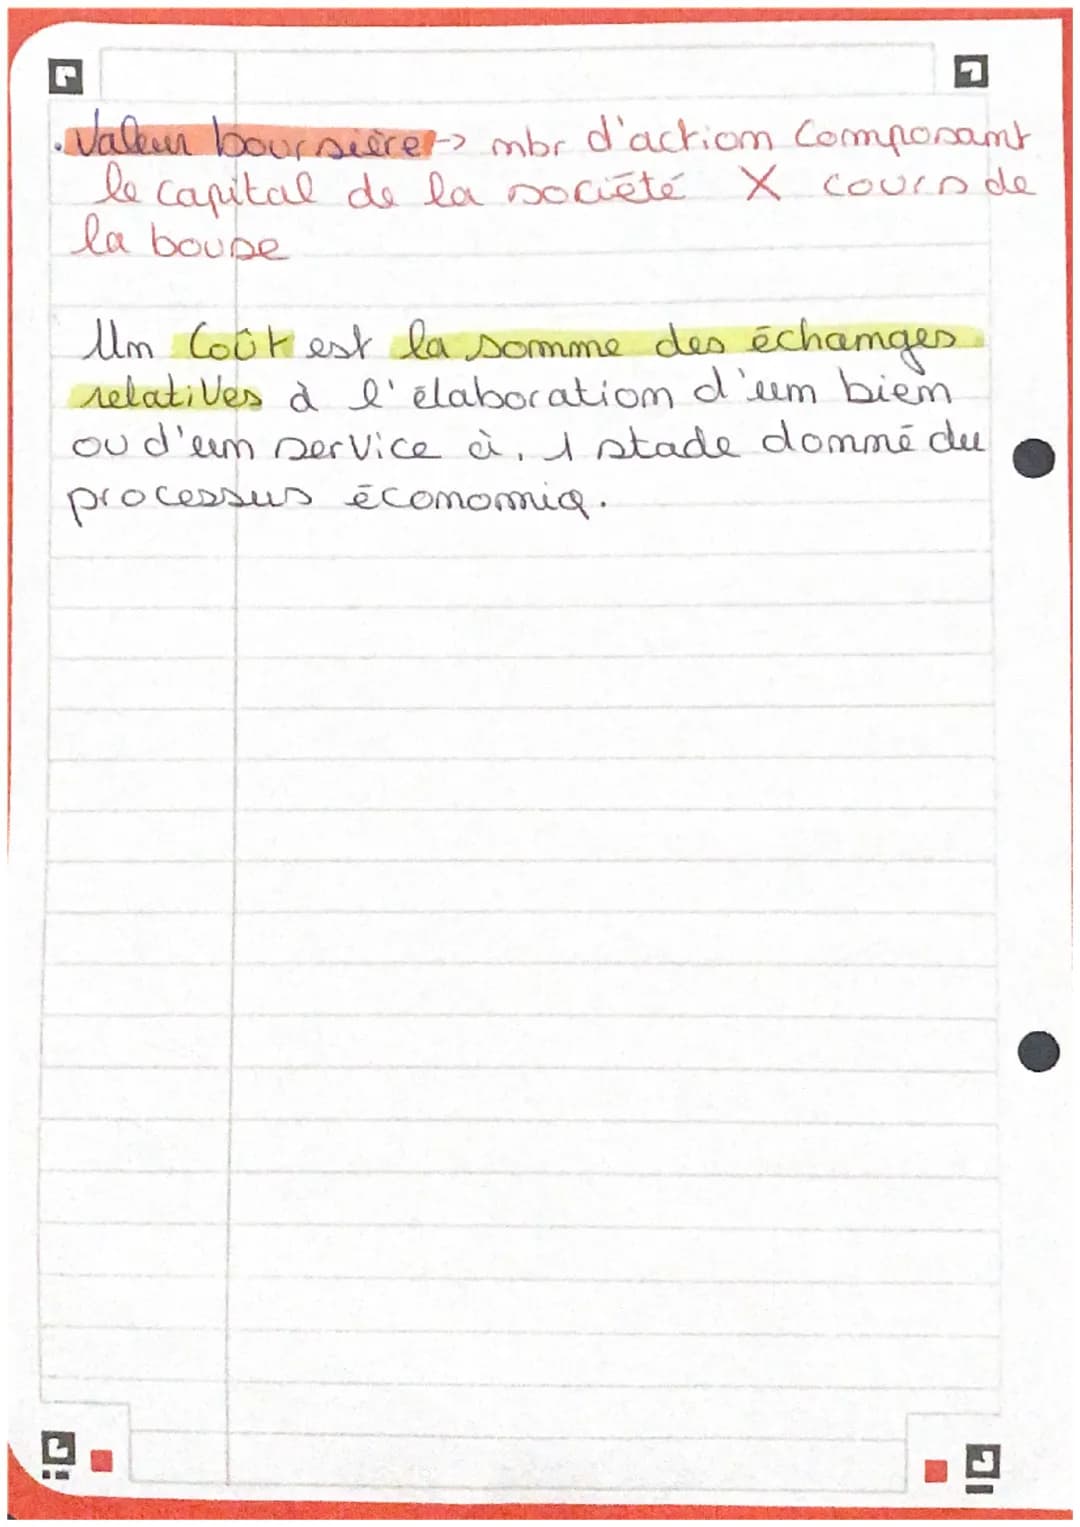 . Valeur boursière → nbr d'action composant
le capital de la société X cours de
la bourse
Un Coût est la somme des échanges
relatives à l'élaboration d'un bien
ou d'un service à, 1 stade donné du
processus économiq.